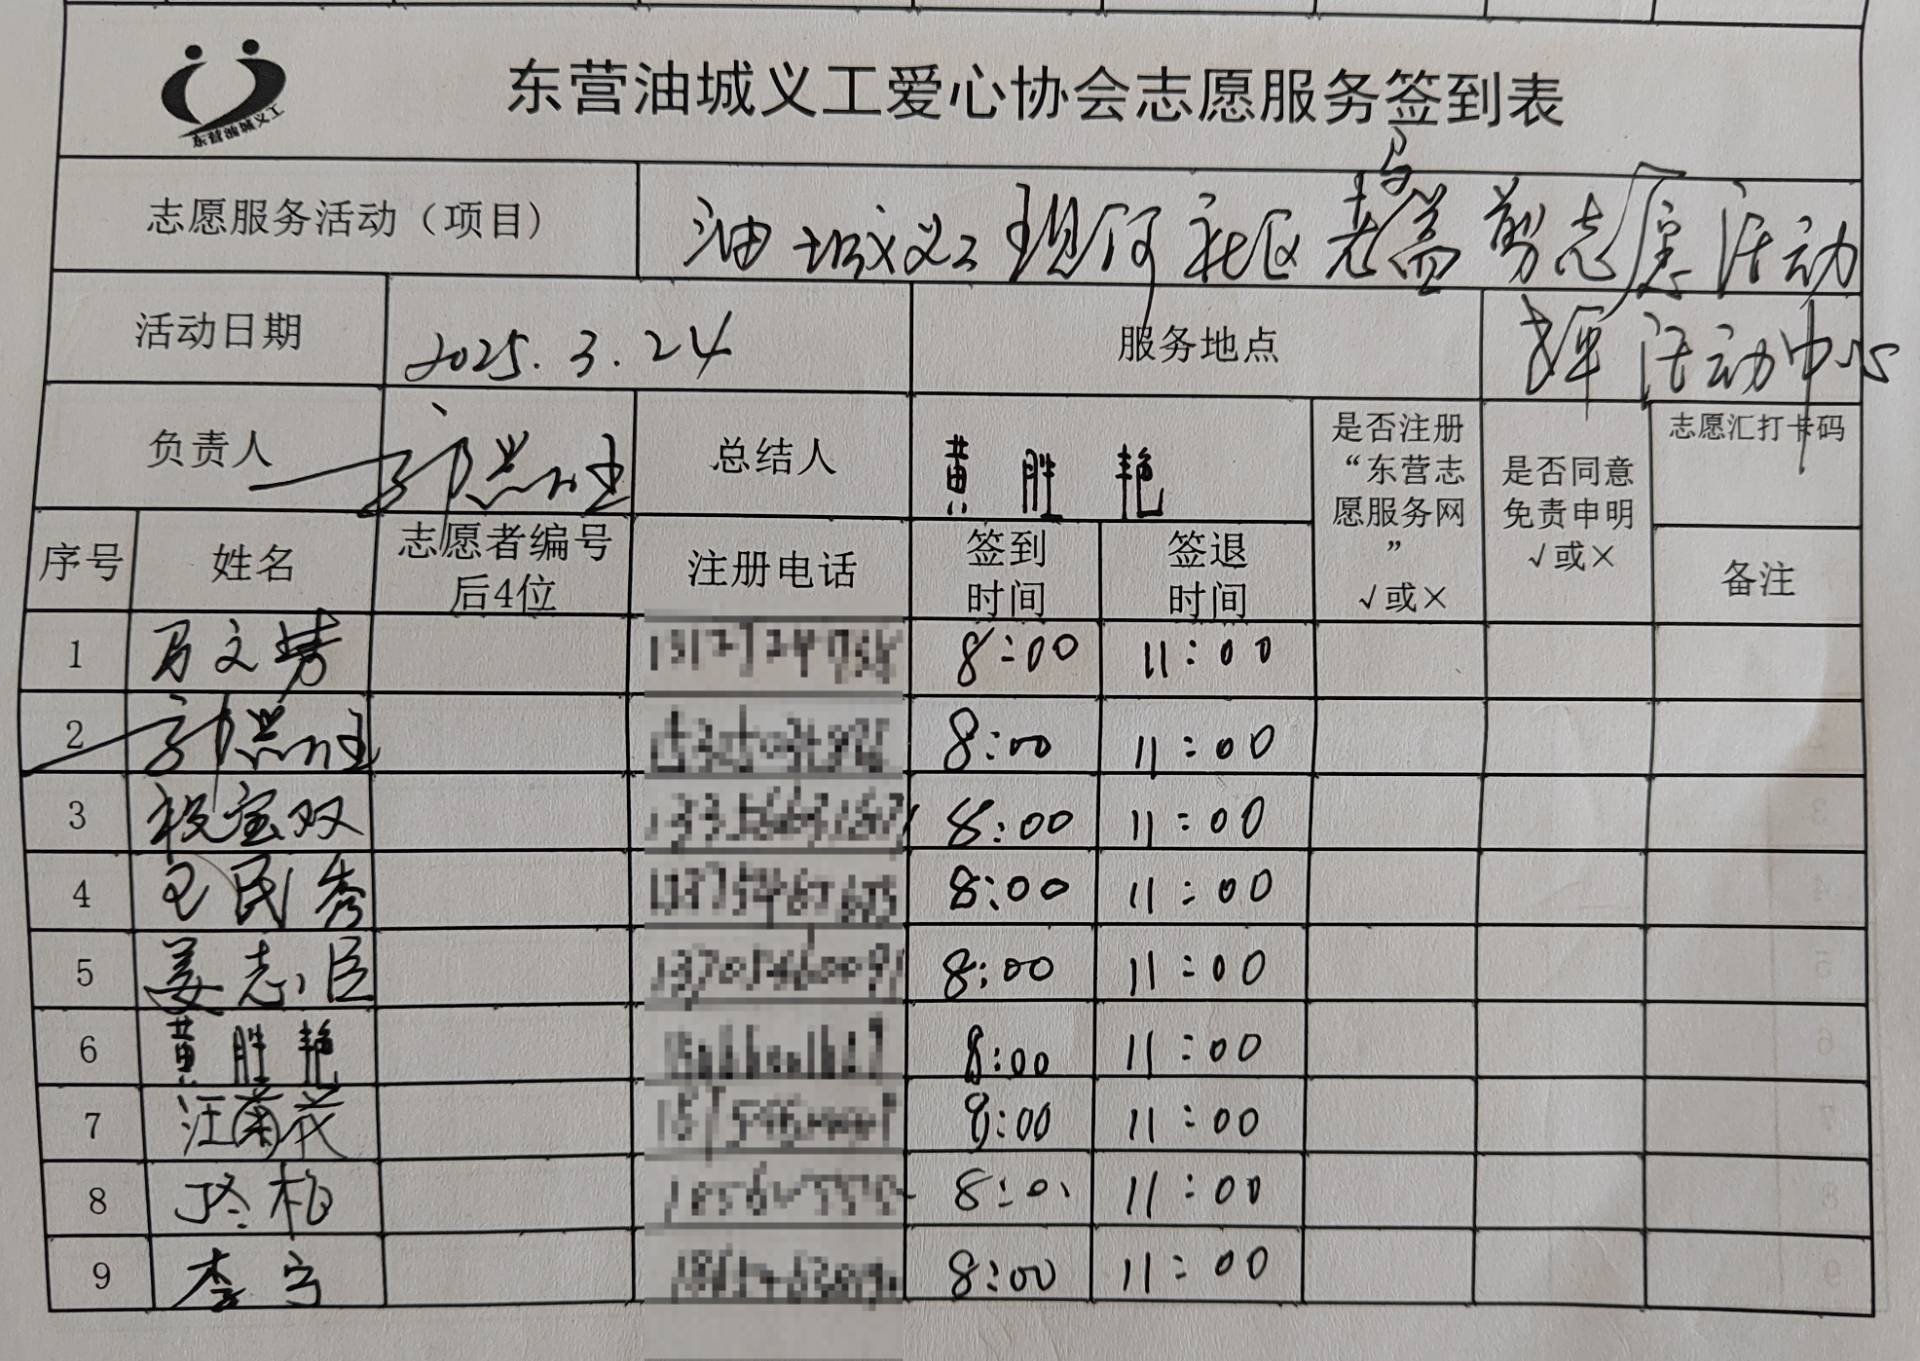 东营油城义工
东营油城义工爱心协会志愿服务签到表
志愿服务活动（项目） 油城义工现河社区 志愿活动
活动日期 2025.3.24 服务地点 活动中心
负责人 总结人 黄胜艳 是否注册“东营志愿服务网” √或× 是否同意免责申明 √或× 志愿汇打卡码
序号 姓名 志愿者编号后4位 注册电话 签到时间 签退时间 备注
1 8:00 11:00
2 8:00 11:00
3 祝宝双 8:00 11:00
4 民秀 8:00 11:00
5 姜志臣 8:00 11:00
6 黄胜艳 8:00 11:00
7 汪菊花 8:00 11:00
8 柏 11:00
9 李宁 8:00 11:00